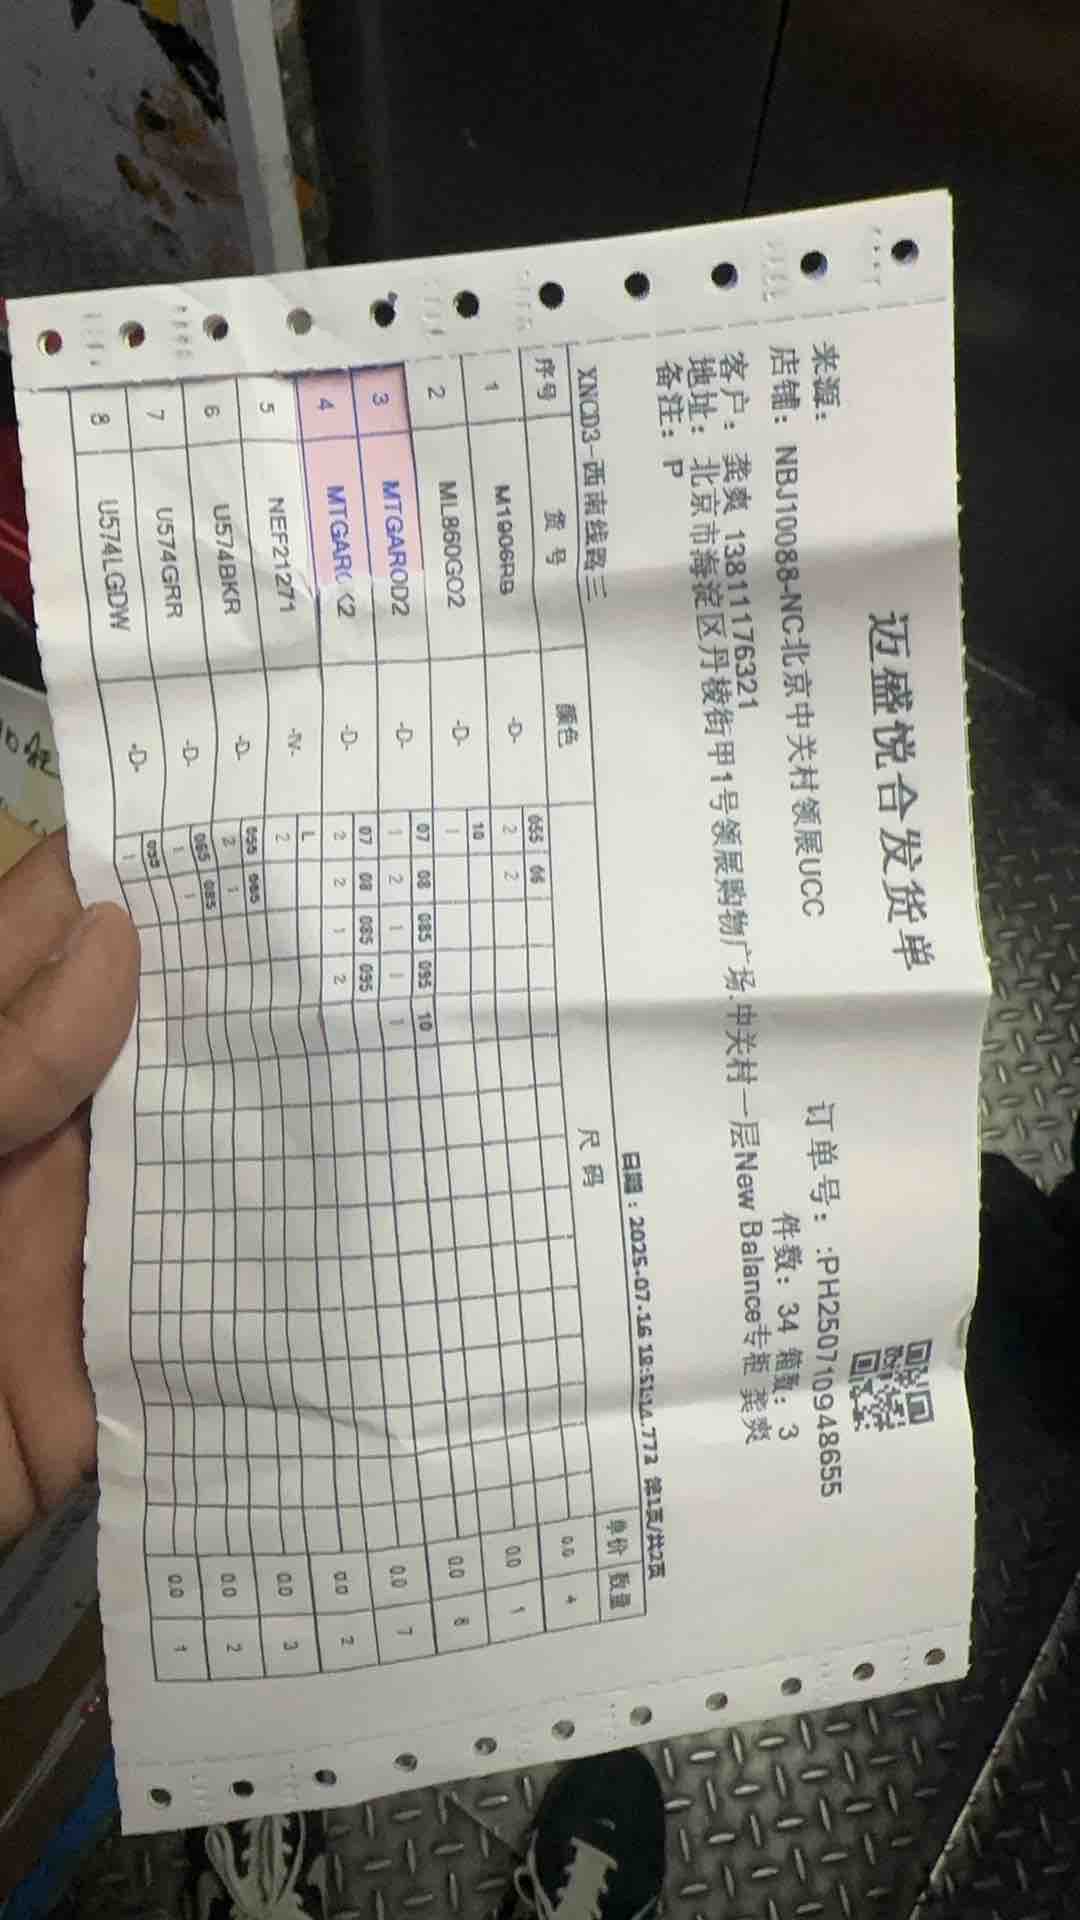 迈盛悦合发货单
来源：
订单号：:PH250710948655
店铺：NBJ10088-NC北京中关村领展UCC
件数：34 箱数：3
客户：龚爽 13811176321
地址：北京市海淀区丹棱街甲1号领展购物广场.中关村一层New Balance专柜 龚爽
备注：P
日期：2025-07-16 18:51:14.773 第1页/共2页
XNCD3-西南线路三
序号 货号 颜色 尺码 单价 数量
055 06
1 M1906RB -D- 2 2 0.0 4
10
2 ML860GO2 -D- 1 0.0 1
07 08 085 095 10
3 MTGAROD2 -D- 1 2 1 1 1 0.0 8
07 08 085 095
4 MTGARO K2 -D- 2 2 1 2 0.0 7
L
5 NEF21271 -IV- 2 0.0 2
055 065
6 U574BKR -D- 2 1 0.0 3
065 085
7 U574GRR -D- 1 1 0.0 2
8 U574LGDW -D- 1 0.0 1